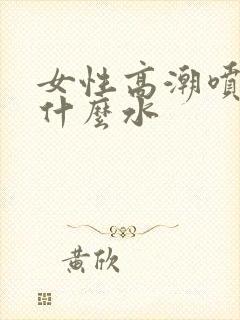 女性高潮噴
什麼水
黃欣